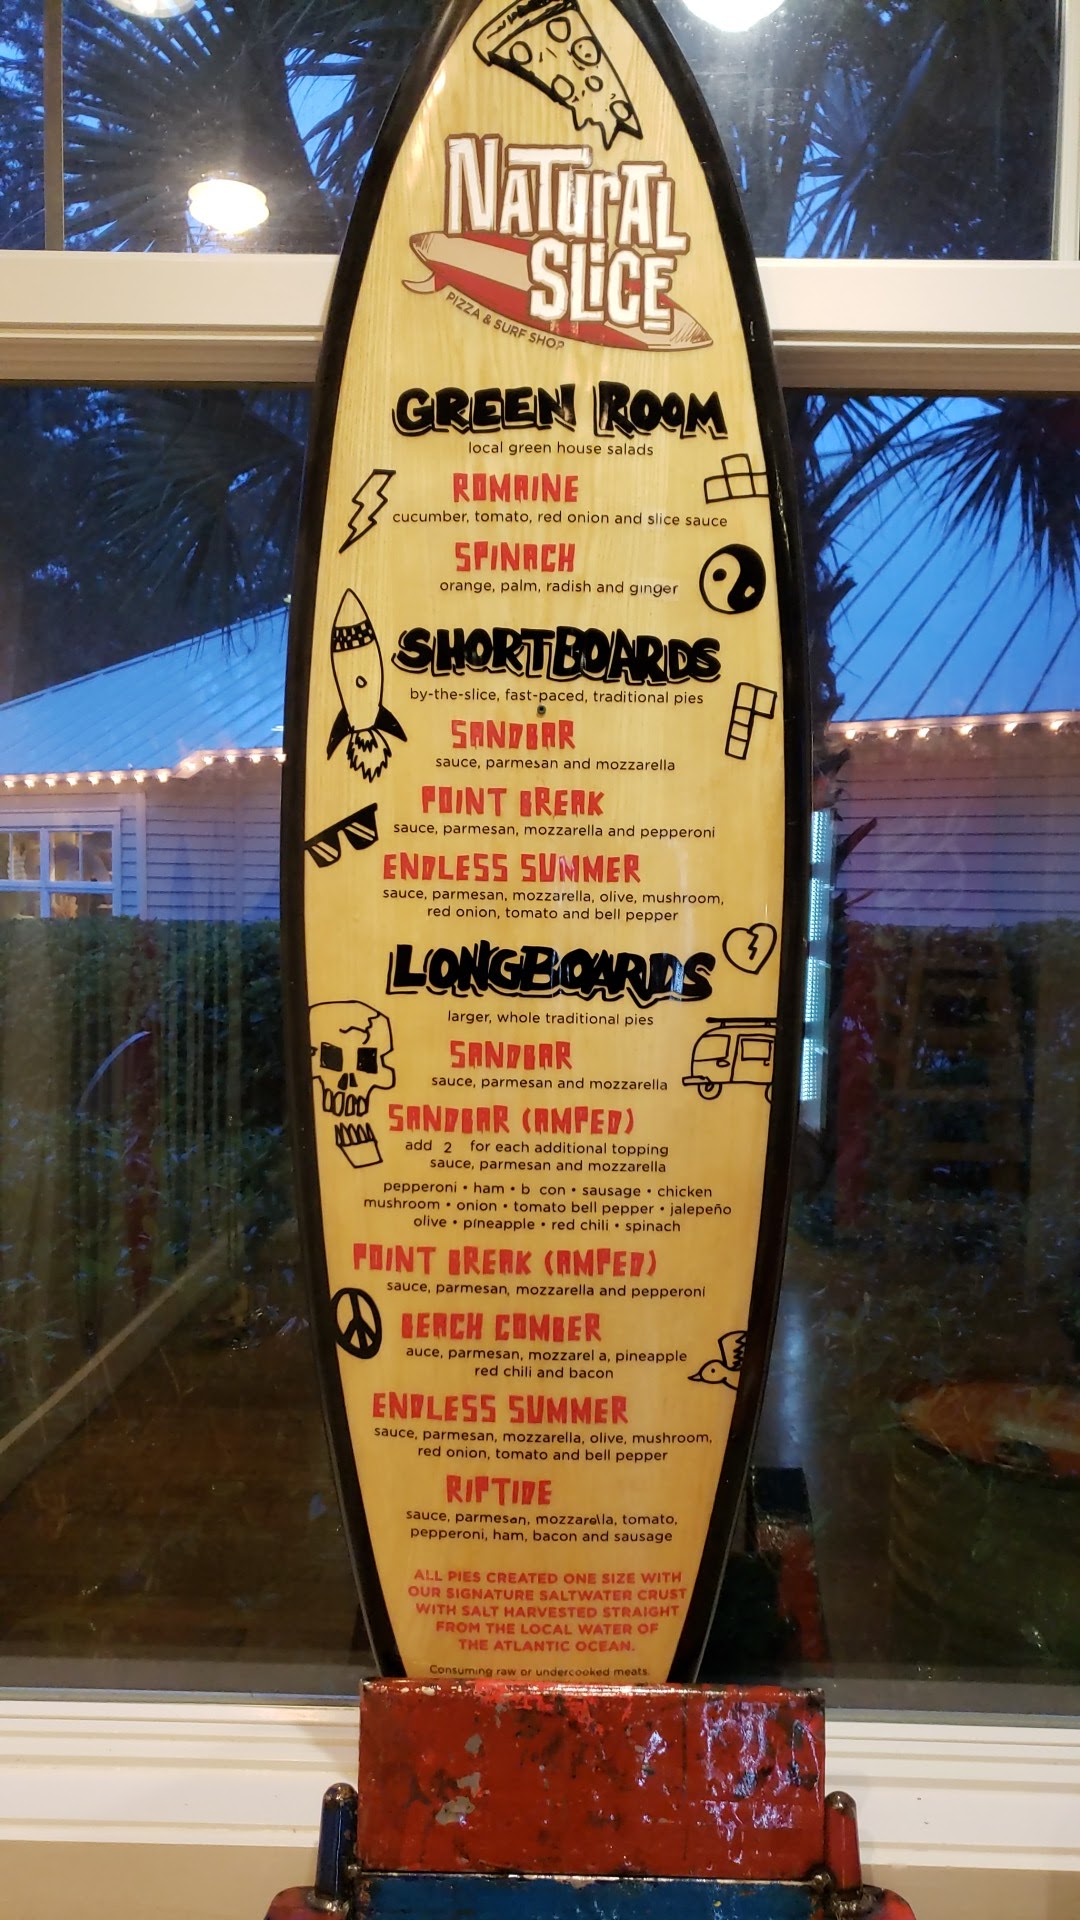 NATURAL
SLICE
PIZZA & SURF SHOP
GREEN ROOM
local green house salads
ROMAINE
cucumber, tomato, red onion and slice sauce
SPINACH
orange, palm, radish and ginger
SHORTBOARDS
by-the-slice, fast-paced, traditional pies
SANDBAR
sauce, parmesan and mozzarella
POINT BREAK
sauce, parmesan, mozzarella and pepperoni
ENDLESS SUMMER
sauce, parmesan, mozzarella, olive, mushroom,
red onion, tomato and bell pepper
LONGBOARDS
larger, whole traditional pies
SANDBAR
sauce, parmesan and mozzarella
SANDBAR (AMPED)
add 2 for each additional topping
sauce, parmesan and mozzarella
pepperoni • ham • b con • sausage • chicken
mushroom • onion • tomato bell pepper • jalepeño
olive • pineapple • red chili • spinach
POINT BREAK (AMPED)
sauce, parmesan, mozzarella and pepperoni
BEACH COMBER
auce, parmesan, mozzarel a, pineapple
red chili and bacon
ENDLESS SUMMER
sauce, parmesan, mozzarella, olive, mushroom,
red onion, tomato and bell pepper
RIPTIDE
sauce, parmesan, mozzarella, tomato,
pepperoni, ham, bacon and sausage
ALL PIES CREATED ONE SIZE WITH
OUR SIGNATURE SALTWATER CRUST
WITH SALT HARVESTED STRAIGHT
FROM THE LOCAL WATER OF
THE ATLANTIC OCEAN.
Consuming raw or undercooked meats.